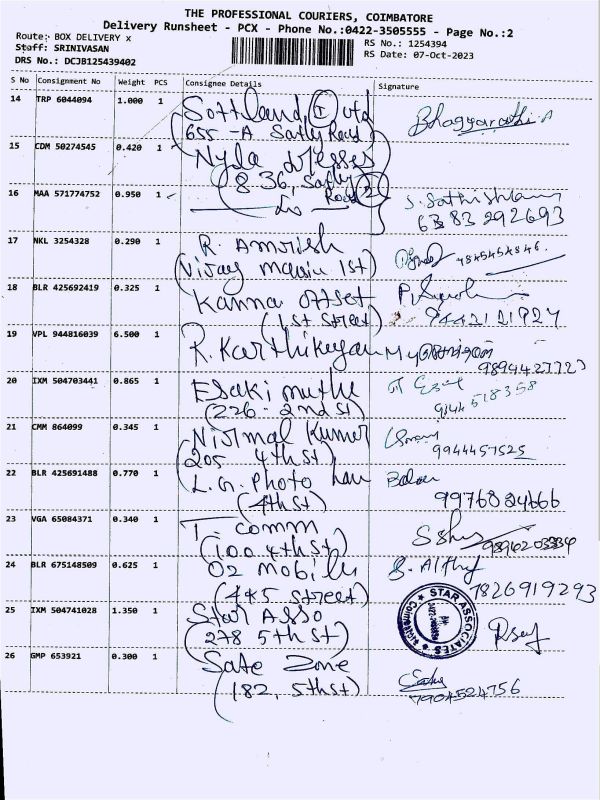 THE PROFESSIONAL COURIERS, COIMBATORE
Delivery Runsheet - PCX - Phone No.:0422-3505555 - Page No.:2
Route: BOX DELIVERY x
RS No.: 1254394
Staff: SRINIVASAN
RS Date: 07-Oct-2023
DRS No.: DCJB125439402
S No Consignment No Weight PCS Consignee Details Signature
14 TRP 6044094 1.000 1 
655 -A Sathy Road
15 CDM 50274545 0.420 1 Nyla dresses
836, Sathy
Road 2
16 MAA 571774752 0.950 1
6383292693
17 NKL 3254328 0.290 1 R. Amrish
1st)
18 BLR 425692419 0.325 1 Kanna offset
(1st street)
9442121927
19 VPL 944816039 6.500 1 R. Karthikeyan
20 IXM 504703441 0.865 1 Esaki muthu
(226 - 2nd st)
21 CMM 864099 0.345 1 Nirmal Kumar
205 4th st)
9944457525
22 BLR 425691488 0.770 1 L.G. Photo
(4th st)
23 VGA 65084371 0.340 1 T. comm
(100 4th st)
24 BLR 675148509 0.625 1 O2 Mobile
(445 street)
7826919293
25 IXM 504741028 1.350 1 Star Asso
(278 5th st)
STAR ASSOCIATES
Coimbatore
26 GMP 653921 0.300 1 Safe Zone
(182, 5th st)
7904524756